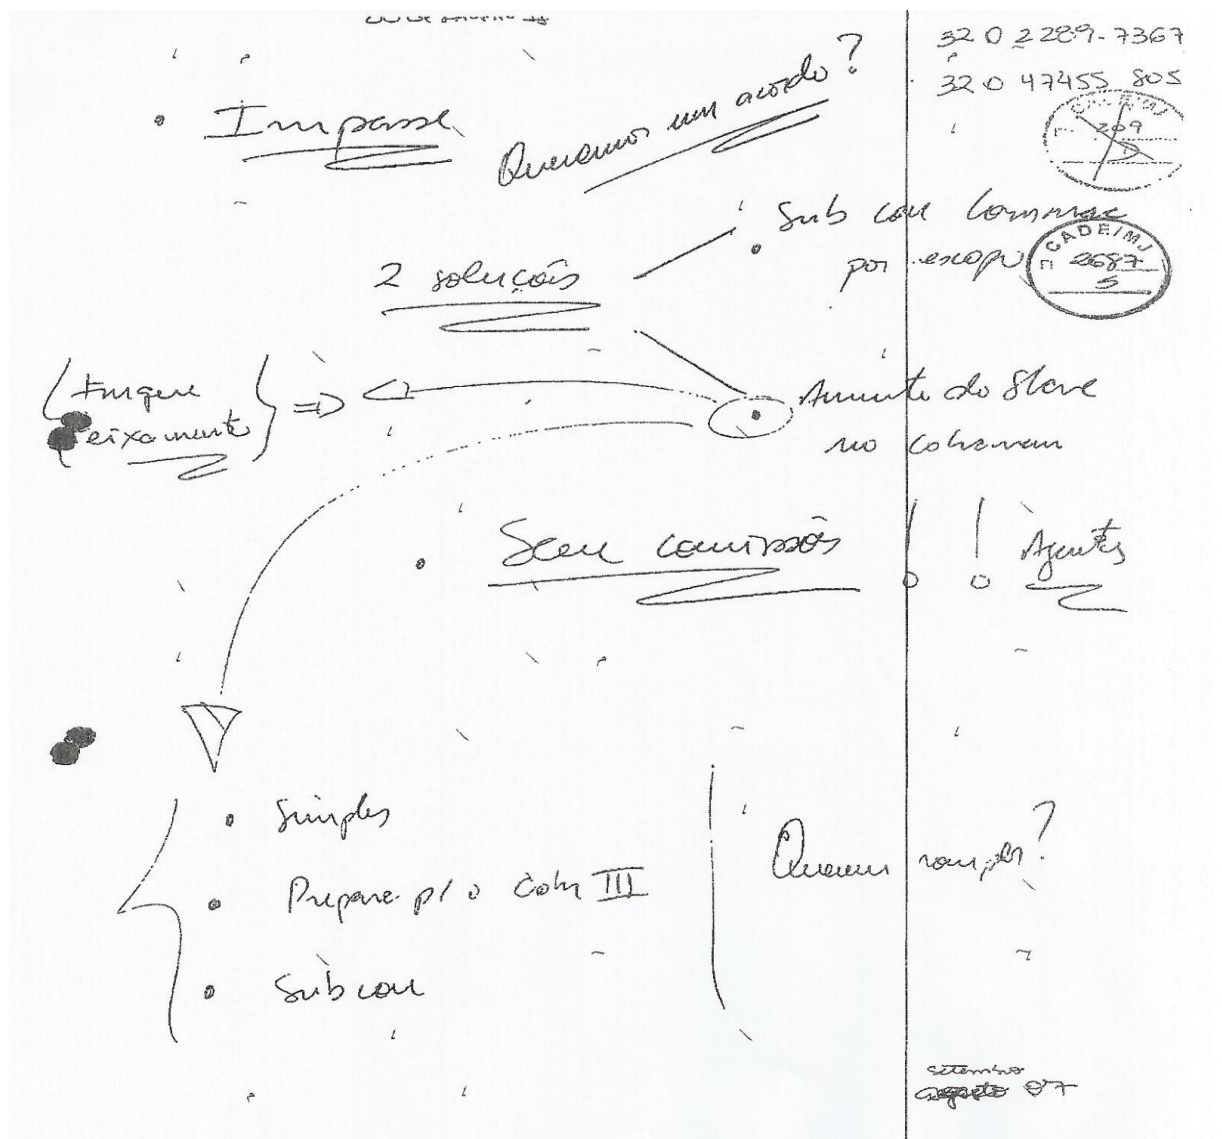 32 0 2289-7367
32 0 47455 805
CADE/MJ
209
• Impasse
Queremos um acordo?
2 soluções
• Sub con
por escopo
CADE/MJ
2687
5
• Aumento do Share
no
• Sem comissões ! ! Agentes
• Simples
• Prepare p/ o Cohn III
• Subcon
Querem romper?
setembro
agosto 07